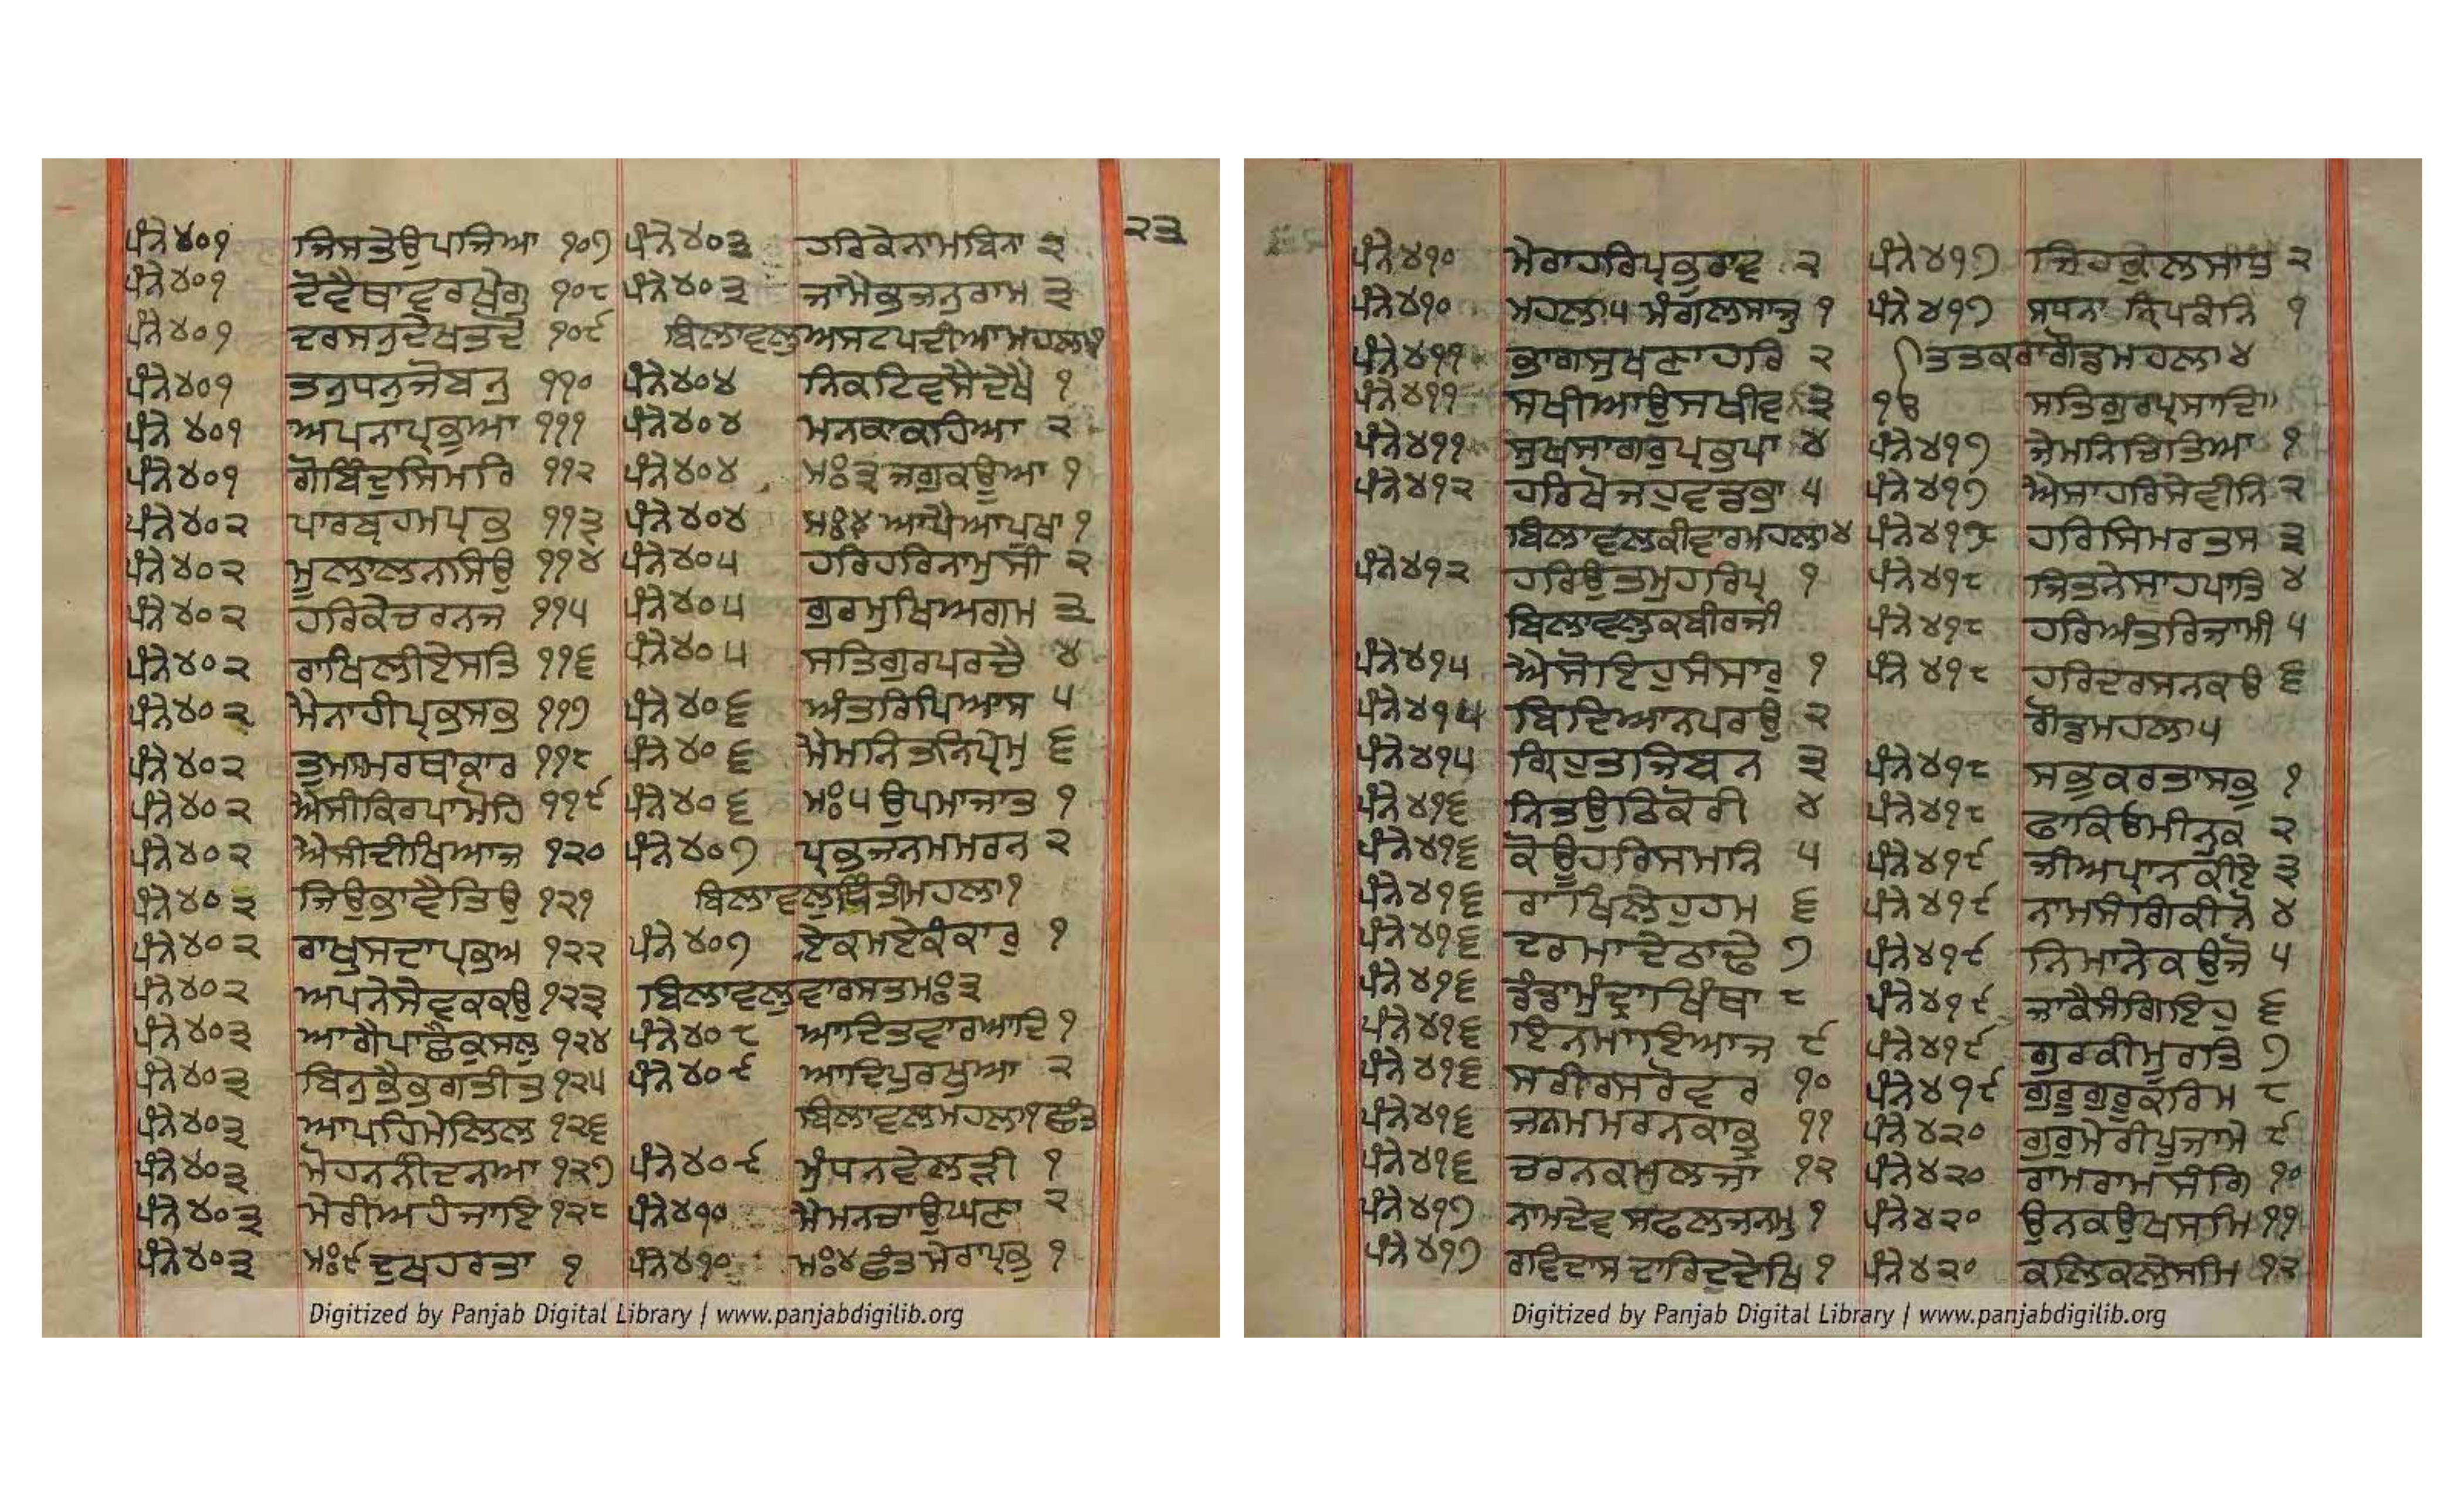 ੨੩
ਪੰਨੇ ੪੦੧ ਜਿਸਤੇਉਪਜਿਆ ੧੦੭
ਪੰਨੇ ੪੦੧ ਦੋਵੈਥਾਵਰਖੇਗੁ ੧੦੮
ਪੰਨੇ ੪੦੧ ਦਰਸਨੁਦੇਖਤਦੋ ੧੦੯
ਪੰਨੇ ੪੦੧ ਤਨੁਧਨੁਜੋਬਨੁ ੧੧੦
ਪੰਨੇ ੪੦੧ ਅਪਨਾਪ੍ਰਭੁਆ ੧੧੧
ਪੰਨੇ ੪੦੧ ਗੋਬਿੰਦੁਸਿਮਰਿ ੧੧੨
ਪੰਨੇ ੪੦੨ ਪਾਰਬ੍ਰਹਮਪ੍ਰਭ ੧੧੩
ਪੰਨੇ ੪੦੨ ਮੂਲਾਲਨਸਿਉ ੧੧੪
ਪੰਨੇ ੪੦੨ ਹਰਿਕੇਚਰਨਜ ੧੧੫
ਪੰਨੇ ੪੦੨ ਰਾਖਿਲੀਏਸਤਿ ੧੧੬
ਪੰਨੇ ੪੦੨ ਮੈਨਾਹੀਪ੍ਰਭਸਭ ੧੧੭
ਪੰਨੇ ੪੦੨ ਤੁਮਸਮਰਥਾਕਾਰ ੧੧੮
ਪੰਨੇ ੪੦੨ ਐਸੀਕਿਰਪਾਮੋਹਿ ੧੧੯
ਪੰਨੇ ੪੦੨ ਐਸੀਦੀਖਿਆਜ ੧੨੦
ਪੰਨੇ ੪੦੨ ਜਿਉਭਾਵੈਤਿਉ ੧੨੧
ਪੰਨੇ ੪੦੨ ਰਾਖੁਸਦਾਪ੍ਰਭਅ ੧੨੨
ਪੰਨੇ ੪੦੨ ਅਪਨੇਸੇਵਕਕਉ ੧੨੩
ਪੰਨੇ ੪੦੩ ਆਗੈਪਾਛੈਕੁਸਲੁ ੧੨੪
ਪੰਨੇ ੪੦੩ ਬਿਨੁਭੈਭਗਤੀਤ ੧੨੫
ਪੰਨੇ ੪੦੩ ਆਪਹਿਮੇਲਿਲ ੧੨੬
ਪੰਨੇ ੪੦੩ ਮੋਹਨਨੀਦਨਆ ੧੨੭
ਪੰਨੇ ੪੦੩ ਮੋਰੀਅਹੰਜਾਇ ੧੨੮
ਪੰਨੇ ੪੦੩ ਮਃ੯ਦੁਖਹਰਤਾ ੧
ਪੰਨੇ ੪੦੩ ਹਰਿਕੇਨਾਮਬਿਨਾ ੨
ਪੰਨੇ ੪੦੩ ਜਾਮੈਭਜਨੁਰਾਮ ੩
ਬਿਲਾਵਲੁਅਸਟਪਦੀਆਮਹਲਾ੧
ਪੰਨੇ ੪੦੪ ਨਿਕਟਿਵਸੈਦੇਖੈ ੧
ਪੰਨੇ ੪੦੪ ਮਨਕਾਕਹਿਆ ੨
ਪੰਨੇ ੪੦੪ ਮਃ੩ਜਗੁਕਊਆ ੧
ਪੰਨੇ ੪੦੪ ਮਃ੪ਆਪੈਆਪੁਖਾ ੧
ਪੰਨੇ ੪੦੫ ਹਰਿਹਰਿਨਾਮੁਸੀ ੨
ਪੰਨੇ ੪੦੫ ਗੁਰਮੁਖਿਅਗਮ ੩
ਪੰਨੇ ੪੦੫ ਸਤਿਗੁਰਪਰਚੈ ੪
ਪੰਨੇ ੪੦੬ ਅੰਤਰਿਪਿਆਸ ੫
ਪੰਨੇ ੪੦੬ ਮੈਮਨਿਤਨਿਪ੍ਰੇਮੁ ੬
ਪੰਨੇ ੪੦੬ ਮਃ੫ਉਪਮਾਜਾਤ ੧
ਪੰਨੇ ੪੦੭ ਪ੍ਰਭਜਨਮਮਰਨ ੨
ਬਿਲਾਵਲੁਥਿਤੀਮਹਲਾ੧
ਪੰਨੇ ੪੦੭ ਏਕਮਏਕੰਕਾਰੁ ੧
ਬਿਲਾਵਲੁਵਾਰਸਤਮਃ੩
ਪੰਨੇ ੪੦੮ ਆਦਿਤਵਾਰਆਦਿ ੧
ਪੰਨੇ ੪੦੯ ਆਦਿਪੁਰਖੁਆ ੨
ਬਿਲਾਵਲਮਹਲਾ੧ਛੰਤ
ਪੰਨੇ ੪੦੯ ਮੁੰਧਨਵੇਲੜੀ ੧
ਪੰਨੇ ੪੧੦ ਮੈਮਨਚਾਉਘਣਾ ੨
ਪੰਨੇ ੪੧੦ ਮਃ੪ਛੰਤਮੇਰਾਪ੍ਰਭੁ ੧
ਪੰਨੇ ੪੧੦ ਮੇਰਾਹਰਿਪ੍ਰਭੁਰਾਵ ੨
ਪੰਨੇ ੪੧੦ ਮਹਲਾ੫ਮੰਗਲਸਾਜੁ ੧
ਪੰਨੇ ੪੧੧ ਭਾਗਸੁਖਣਾਹਰਿ ੨
ਪੰਨੇ ੪੧੧ ਸਖੀਆਉਸਖੀਵ ੩
ਪੰਨੇ ੪੧੧ ਸੁਖਸਾਗਰੁਪ੍ਰਭੁਪਾ ੪
ਪੰਨੇ ੪੧੨ ਹਰਿਖੋਜਹੁਵਡਭਾ ੫
ਬਿਲਾਵਲੁਕੀਵਾਰਮਹਲਾ੪
ਪੰਨੇ ੪੧੨ ਹਰਿਉਤਮੁਹਰਿਪ੍ਰ ੧
ਬਿਲਾਵਲੁਕਬੀਰਜੀ
ਪੰਨੇ ੪੧੫ ਐਸੋਇਹੁਸੰਸਾਰੁ ੧
ਪੰਨੇ ੪੧੫ ਬਿਦਿਆਨਪਰਉ ੨
ਪੰਨੇ ੪੧੫ ਗ੍ਰਿਹੁਤਜਿਬਨ ੩
ਪੰਨੇ ੪੧੬ ਨਿਤਉਠਿਕੋਰੀ ੪
ਪੰਨੇ ੪੧੬ ਕੋਊਹਰਿਸਮਾਨਿ ੫
ਪੰਨੇ ੪੧੬ ਰਾਖਿਲੇਹੁਹਮ ੬
ਪੰਨੇ ੪੧੬ ਦਰਮਾਦੇਠਾਢੇ ੭
ਪੰਨੇ ੪੧੬ ਡੰਡਾਮੁੰਦ੍ਰਾਖਿੰਥਾ ੮
ਪੰਨੇ ੪੧੬ ਇਨਮਾਇਆਜ ੯
ਪੰਨੇ ੪੧੬ ਸਰੀਰਸਰੋਵਰ ੧੦
ਪੰਨੇ ੪੧੬ ਜਨਮਮਰਨਕਾਭ੍ਰ ੧੧
ਪੰਨੇ ੪੧੬ ਚਰਨਕਮਲਜਾ ੧੨
ਪੰਨੇ ੪੧੭ ਨਾਮਦੇਵਸਫਲਜਨਮੁ ੧
ਪੰਨੇ ੪੧੭ ਰਵਿਦਾਸਦਾਰਿਦੁਦੇਖਿ ੧
ਪੰਨੇ ੪੧੭ ਜਿਹਕੁਲਸਾਧੁ ੨
ਪੰਨੇ ੪੧੭ ਸਧਨਾ ਨ੍ਰਿਪਕੰਨਿ ੧
ਤਤਕਰਾਗੋਡਮਹਲਾ੪
ੴ ਸਤਿਗੁਰਪ੍ਰਸਾਦਿ॥
ਪੰਨੇ ੪੧੭ ਜੇਮਨਿਚਿਤਿਆ ੧
ਪੰਨੇ ੪੧੭ ਐਸਾਹਰਿਸੇਵੀਨਿ ੨
ਪੰਨੇ ੪੧੮ ਹਰਿਸਿਮਰਤਸ ੩
ਪੰਨੇ ੪੧੮ ਜਿਤਨੇਸਾਹਪਾਤਿ ੪
ਪੰਨੇ ੪੧੮ ਹਰਿਅੰਤਰਿਜਾਮੀ ੫
ਪੰਨੇ ੪੧੮ ਹਰਿਦਰਸਨਕਉ ੬
ਗੋਡਮਹਲਾ੫
ਪੰਨੇ ੪੧੮ ਸਭੁਕਰਤਾਸਭੁ ੧
ਪੰਨੇ ੪੧੮ ਫਾਕਿਓਮੀਨਕ ੨
ਪੰਨੇ ੪੧੯ ਜੀਅਪ੍ਰਾਨਕੀਏ ੩
ਪੰਨੇ ੪੧੯ ਨਾਮਸੰਗਿਕੀਨੋ ੪
ਪੰਨੇ ੪੧੯ ਨਿਮਾਨੇਕਉਜੋ ੫
ਪੰਨੇ ੪੧੯ ਜਾਕੈਸੰਗਿਇਹੁ ੬
ਪੰਨੇ ੪੧੯ ਗੁਰਕੀਮੂਰਤਿ ੭
ਪੰਨੇ ੪੧੯ ਗੁਰੁਗੁਰੁਕਰਿਮ ੮
ਪੰਨੇ ੪੨੦ ਗੁਰੁਮੇਰੀਪੂਜਾਮੇ ੯
ਪੰਨੇ ੪੨੦ ਰਾਮਰਾਮਸੰਗਿ ੧੦
ਪੰਨੇ ੪੨੦ ਉਨਕਉਖਸਮਿ ੧੧
ਪੰਨੇ ੪੨੦ ਕਲਿਕਲੇਸਮਿ ੧੨
Digitized by Panjab Digital Library | www.panjabdigilib.org
Digitized by Panjab Digital Library | www.panjabdigilib.org